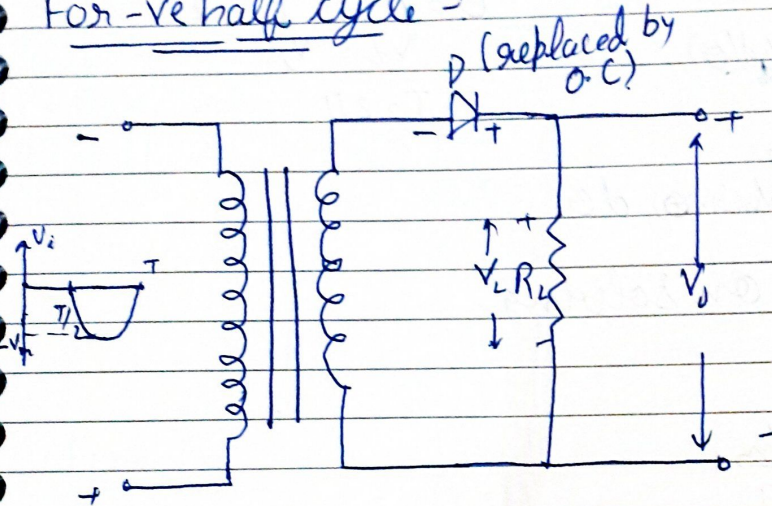 For -ve half cycle -
D (replaced by
O.C)
-
- +
+
Vi
T
T/2
-Vm
+
VL RL
Vo
-
+
-